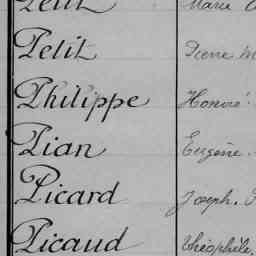 Petit Marie
Petit Pierre M
Philippe Honoré
Pian Eugène
Picard Joseph.
Picaud Théophile